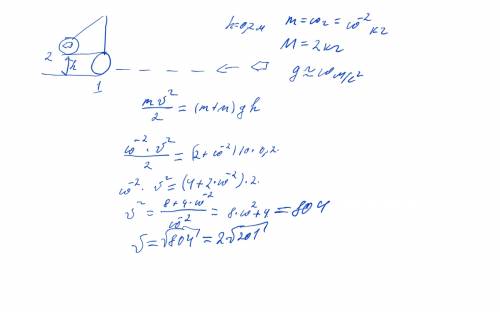 h=0,2м m=10г=10⁻² кг
M=2кг
g≈10 м/с²
2 h
1
mv²/2 = (m+M)gh
10⁻²·v²/2 = (2+10⁻²)10·0,2.
10⁻²·v² = (4+2·10⁻²)·2.
v² = 8+4·10⁻²/10⁻² = 8·10²+4 = 804
v = √804 = 2√201